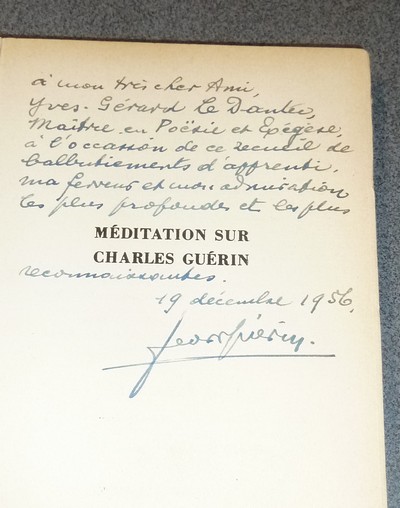 à mon très cher Ami,
Yves-Gérard Le Dantec,
Maître en Poësie et Exégèse,
à l'occasion de ce recueil de
balbutiements d'apprenti,
ma ferveur et mon admiration
les plus profondes et les plus
MÉDITATION SUR
CHARLES GUÉRIN
reconnaissantes.
19 décembre 1956.